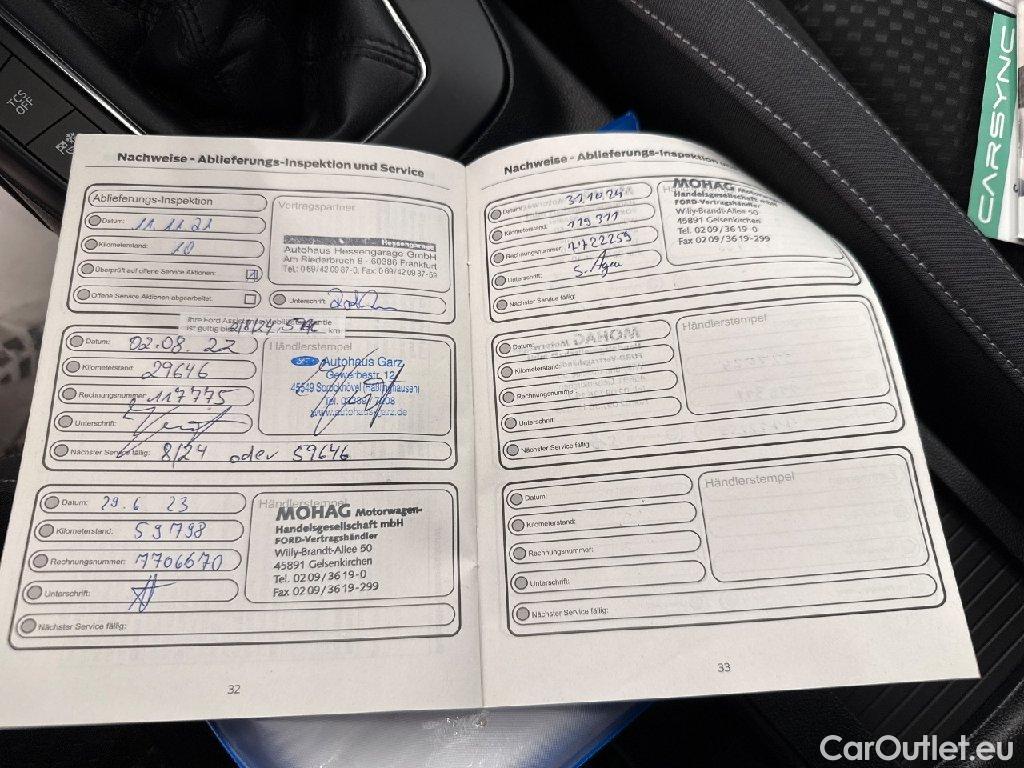 TCS
OFF
CARSYNC
Nachweise - Ablieferungs-Inspektion und Service
Ablieferungs-Inspektion
Datum: 11.11.21
Kilometerstand: 10
Überprüft auf offene Service Aktionen:
Offene Service Aktionen abgearbeitet:
Vertragspartner
Hessengarage
Autohaus Hessengarage GmbH
Am Riederbruch 8 - 60386 Frankfurt
Unterschrift:
Ihre Ford
ist gültig
km
Datum: 02.08.22
Kilometerstand: 29646
Rechnungsnummer: 117775
Unterschrift:
Nächster Service fällig: 8/24 oder 59646
Händlerstempel
Autohaus Garz
Gewerbestr. 12
45549 Sprockhövel (Haßlinghausen)
www.autohausgarz.de
Datum: 29.6 23
Kilometerstand: 59798
Rechnungsnummer: 7706670
Unterschrift:
Nächster Service fällig:
Händlerstempel
MOHAG Motorwagen-
Handelsgesellschaft mbH
FORD-Vertragshändler
Willy-Brandt-Allee 50
45891 Gelsenkirchen
Tel. 02 09 / 36 19-0
Fax 02 09 / 36 19-299
32
Nachweise - Ablieferungs-Inspektion
Datum: 31.10.24
Kilometerstand: 119311
Rechnungsnummer: 7722259
Unterschrift:
Nächster Service fällig:
MOHAG
Handelsgesellschaft
FORD-Vertragshändler
Willy-Brandt-Allee 50
45891 Gelsenkirchen
Tel. 02 09 / 36 19-0
Fax 02 09 / 36 19-299
Datum:
Kilometerstand:
Rechnungsnummer:
Unterschrift:
Nächster Service fällig:
Händlerstempel
Datum:
Kilometerstand:
Rechnungsnummer:
Unterschrift:
Nächster Service fällig:
Händlerstempel
33
CarOutlet.eu